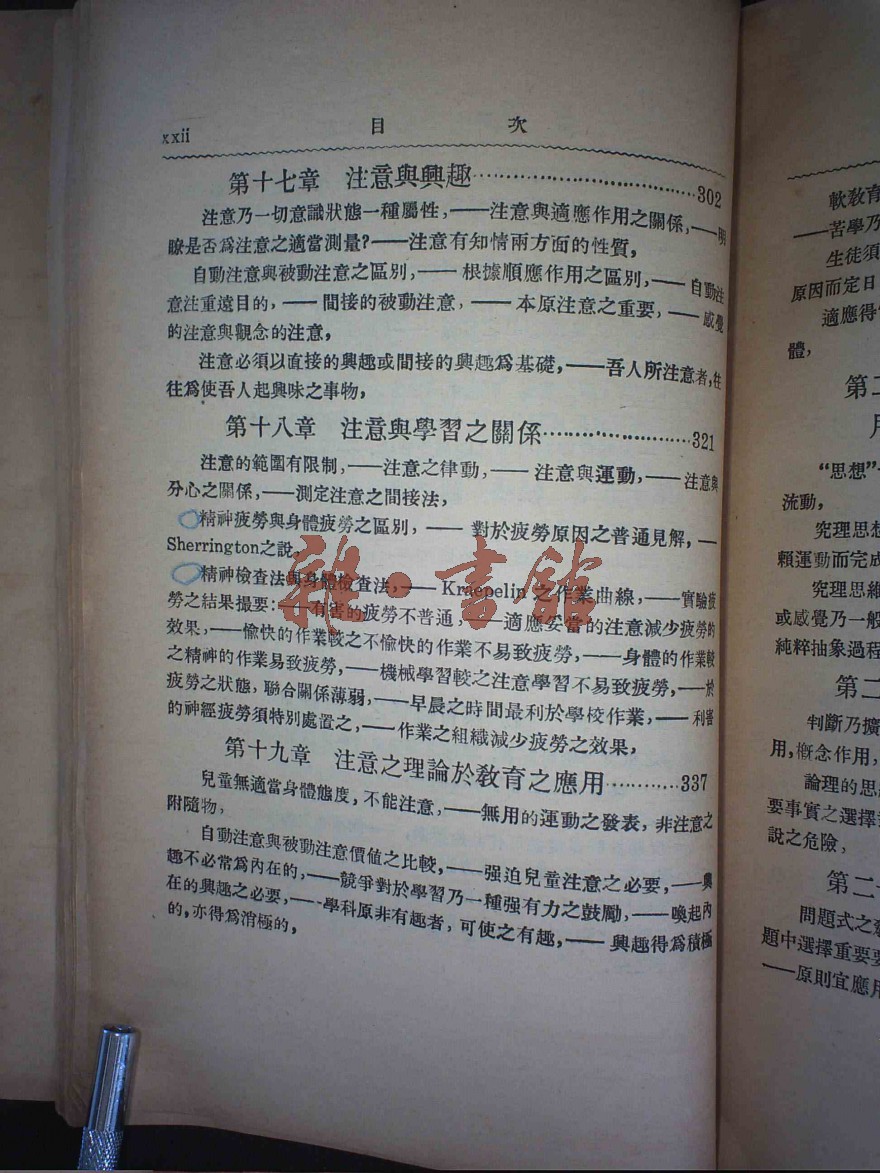 xxii 目 次
第十七章 注意與興趣……302
注意乃一切意識狀態一種屬性,——注意與適應作用之關係,——明
瞭是否爲注意之適當測量?——注意有知情兩方面的性質,
自動注意與被動注意之區別,——根據順應作用之區別,——自動注
意注重遠目的,——間接的被動注意,——本原注意之重要,——感覺
的注意與觀念的注意,
注意必須以直接的興趣或間接的興趣爲基礎,——吾人所注意者,往
往爲使吾人起興味之事物,
第十八章 注意與學習之關係……321
注意的範圍有限制,——注意之律動,——注意與運動,——注意與
分心之關係,——測定注意之間接法,
精神疲勞與身體疲勞之區別,——對於疲勞原因之普通見解,—
Sherrington之說,
精神檢查法與身體檢查法,——Kraepelin之作業曲線,——實驗疲
勞之結果撮要:——有害的疲勞不普通,——適應妥當的注意減少疲勞的
效果,——愉快的作業較之不愉快的作業不易致疲勞,——身體的作業較
之精神的作業易致疲勞,——機械學習較之注意學習不易致疲勞,——於
疲勞之狀態,聯合關係薄弱,——早晨之時間最利於學校作業,——利害
的神經疲勞須特別處置之,——作業之組織減少疲勞之效果,
第十九章 注意之理論於敎育之應用……337
兒童無適當身體態度,不能注意,——無用的運動之發表,非注意之
附隨物,
自動注意與被動注意價値之比較,——强迫兒童注意之必要,——興
趣不必常爲內在的,——競爭對於學習乃一種强有力之鼓勵,——喚起內
在的興趣之必要,——學科原非有趣者,可使之有趣,——興趣得爲積極
的,亦得爲消極的,
雜·書館
軟敎育
——苦學乃
生徒須
原因而定日
適應得
體,
第二
“思想”
流動,
究理思想
賴運動而完成
究理思維
或感覺乃一般
純粹抽象過程
第二
判斷乃擴
用,概念作用,
論理的思
要事實之選擇
說之危險,
第二
問題式之
題中選擇重要
——原則宜應用